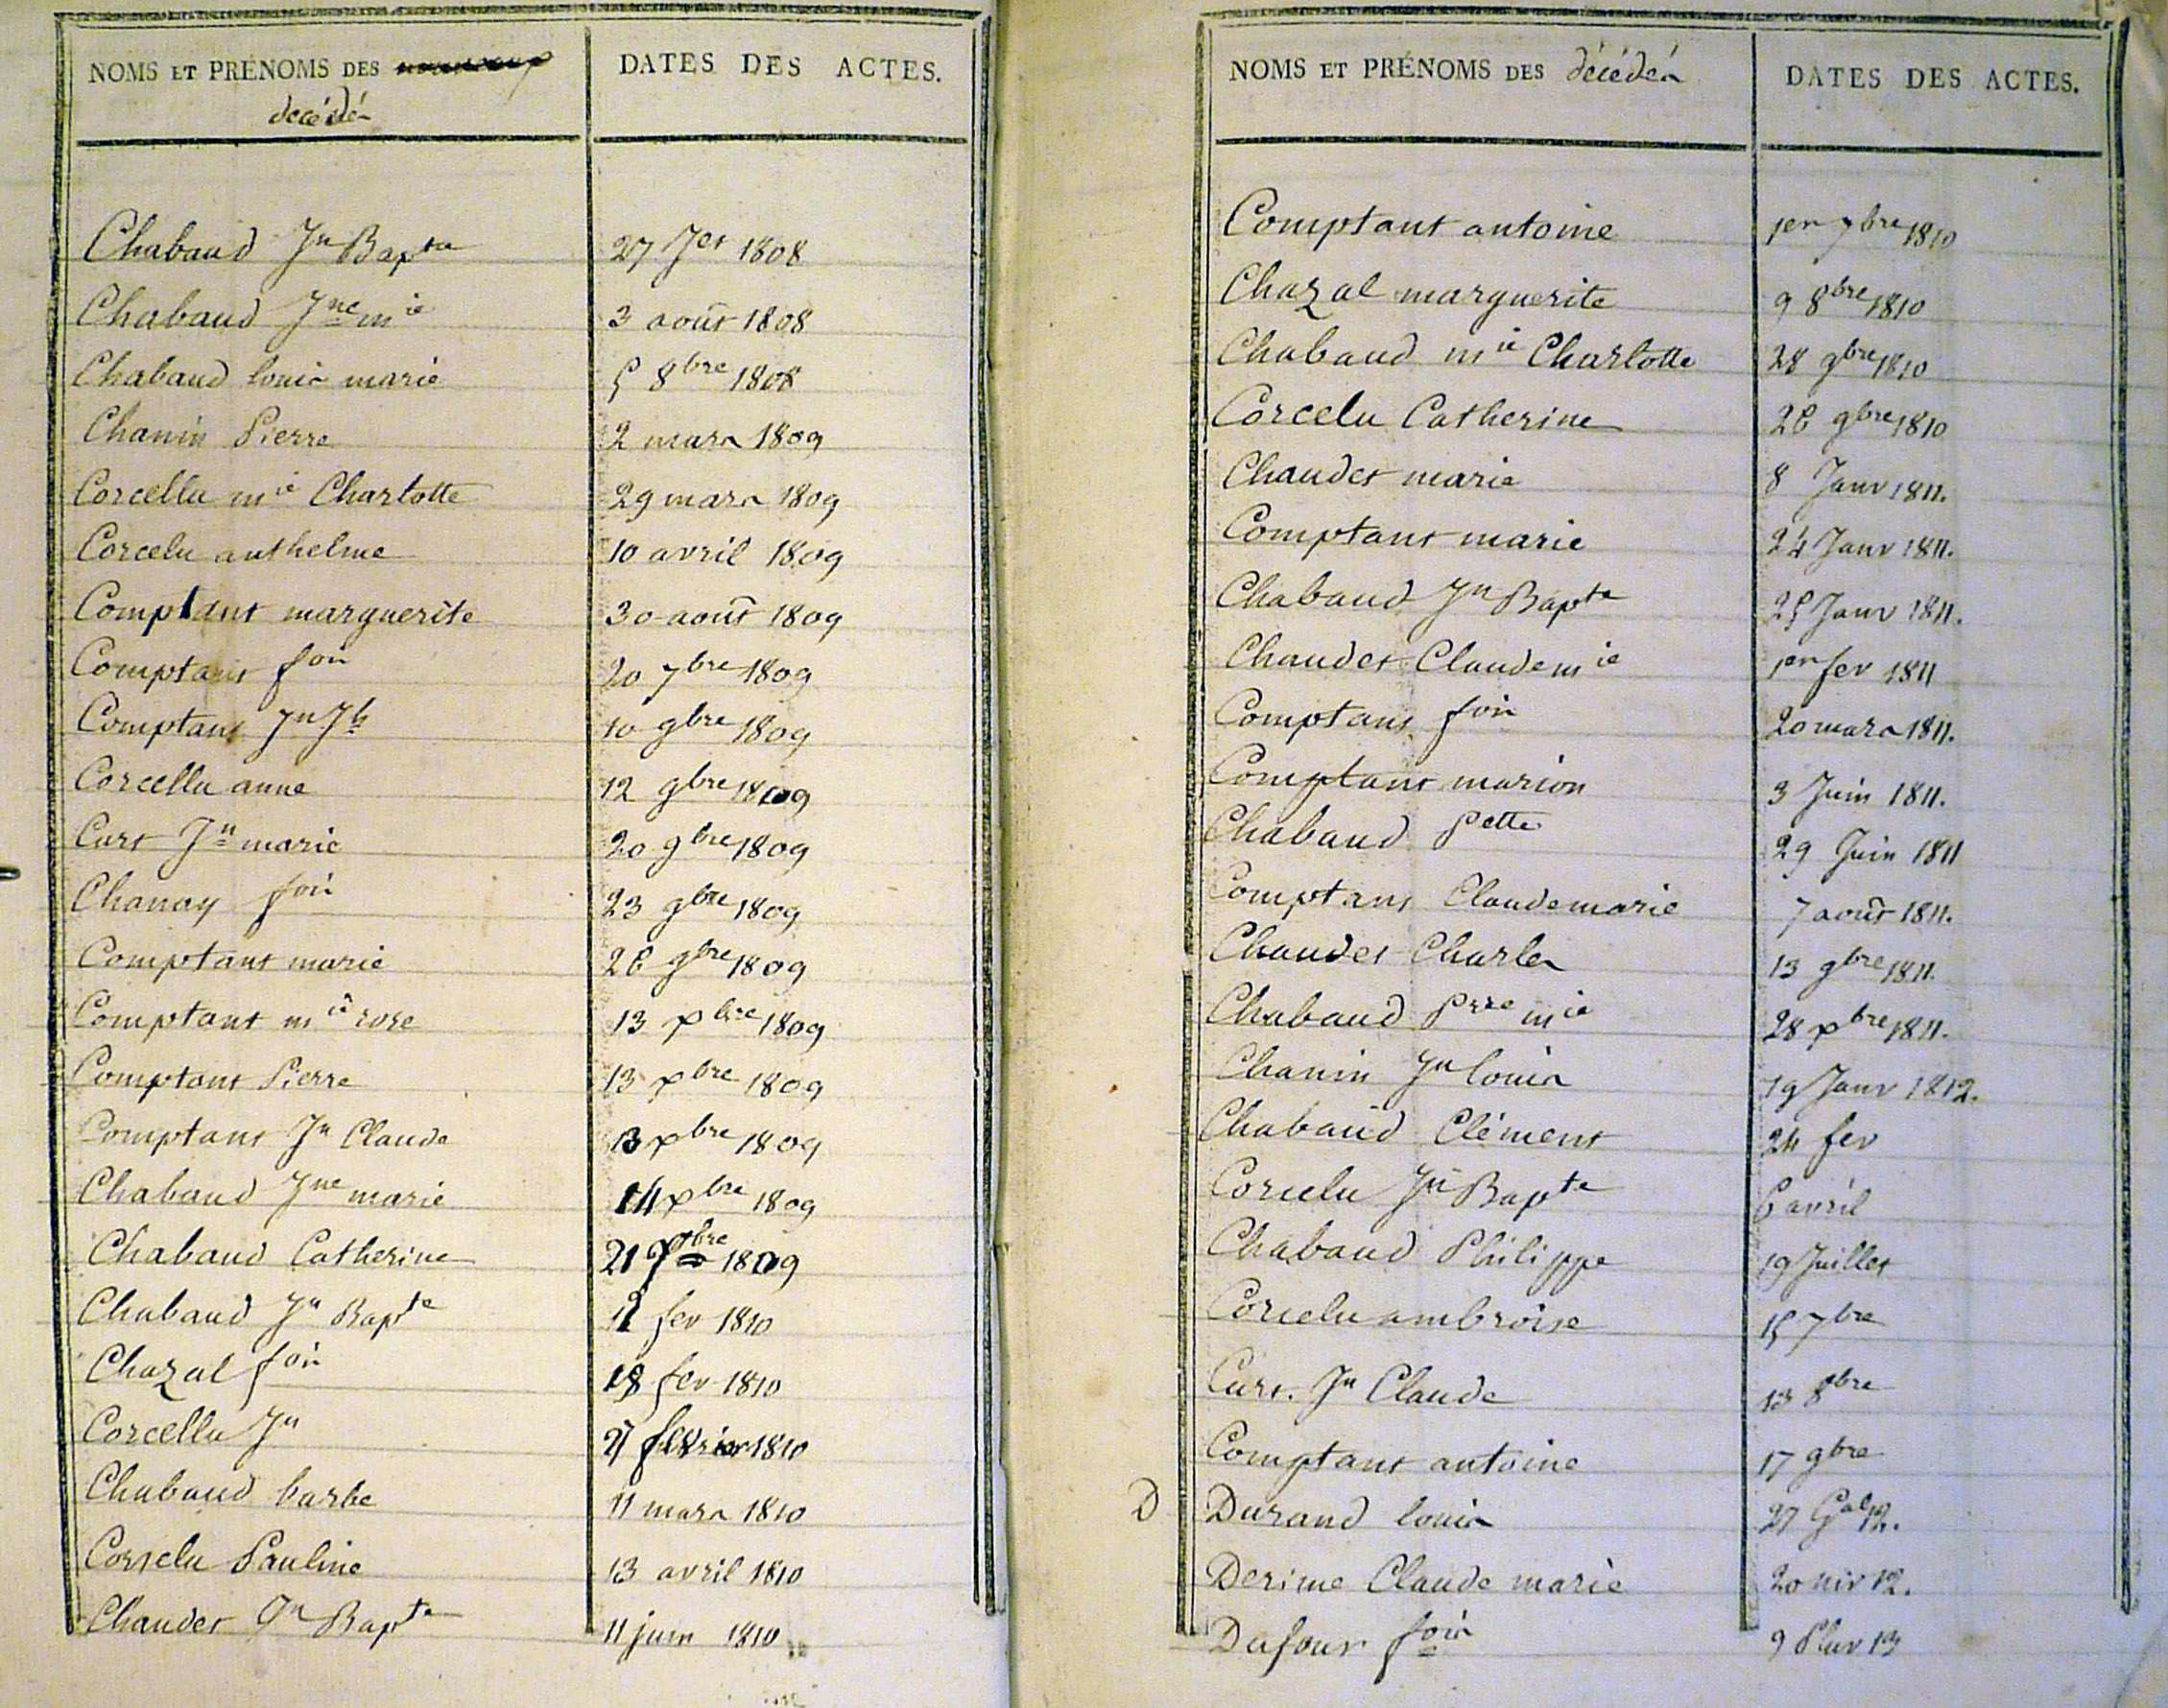 NOMS ET PRÉNOMS DES
décédés
DATES DES ACTES.
Chabaud Jn Bapte 27 Jer 1808
Chabaud Jne mie 3 août 1808
Chabaud louis marie 5 8bre 1808
Chanin Pierre 2 mars 1809
Corcellu mie Charlotte 29 mars 1809
Corcelu anthelme 10 avril 1809
Comptant marguerite 30 août 1809
Comptant fois 20 7bre 1809
Comptant Jn Jh 10 9bre 1809
Corcellu anne 12 9bre 1809
Curt Jn marie 20 9bre 1809
Chanay fois 23 9bre 1809
Comptant marie 26 9bre 1809
Comptant mie rose 13 xbre 1809
Comptant Pierre 13 xbre 1809
Comptant Jn Claude 13 xbre 1809
Chabaud Jne marie 14 xbre 1809
Chabaud Catherine 21 xbre 1809
Chabaud Jn Bapte fev 1810
Chazal fois 18 fev 1810
Corcellu Jn 27 février 1810
Chabaud barbe 11 mars 1810
Corcelu Pauline 13 avril 1810
Chaudet Jn Bapte 11 juin 1810
NOMS ET PRÉNOMS DES décédés
DATES DES ACTES.
Comptant antoine 1er 7bre 1810
Chazal marguerite 9 8bre 1810
Chabaud mie Charlotte 28 9bre 1810
Corcelu Catherine 26 9bre 1810
Chaudet marie 8 Janv 1811.
Comptant marie 24 Janv 1811.
Chabaud Jn Bapte 25 Janv 1811.
Chaudet Claude mie 1er fev 1811
Comptant fois 20 mars 1811.
Comptant marion 3 Juin 1811.
Chabaud Pette 29 Juin 1811
Comptant Claude marie 7 août 1811.
Chaudet Charles 13 9bre 1811.
Chabaud Prre mie 28 xbre 1811.
Chanin Jn louis 19 Janv 1812.
Chabaud Clément 24 fev
Corcelu Jn Bapte 6 avril
Chabaud Philippe 19 Juillet
Corcelu ambroise 15 7bre
Curt. Jn Claude 13 8bre
Comptant antoine 17 9bre
D Durand louis 27 12.
Derime Claude marie 20 niv 12.
Dufour fois 9 Pluv 13